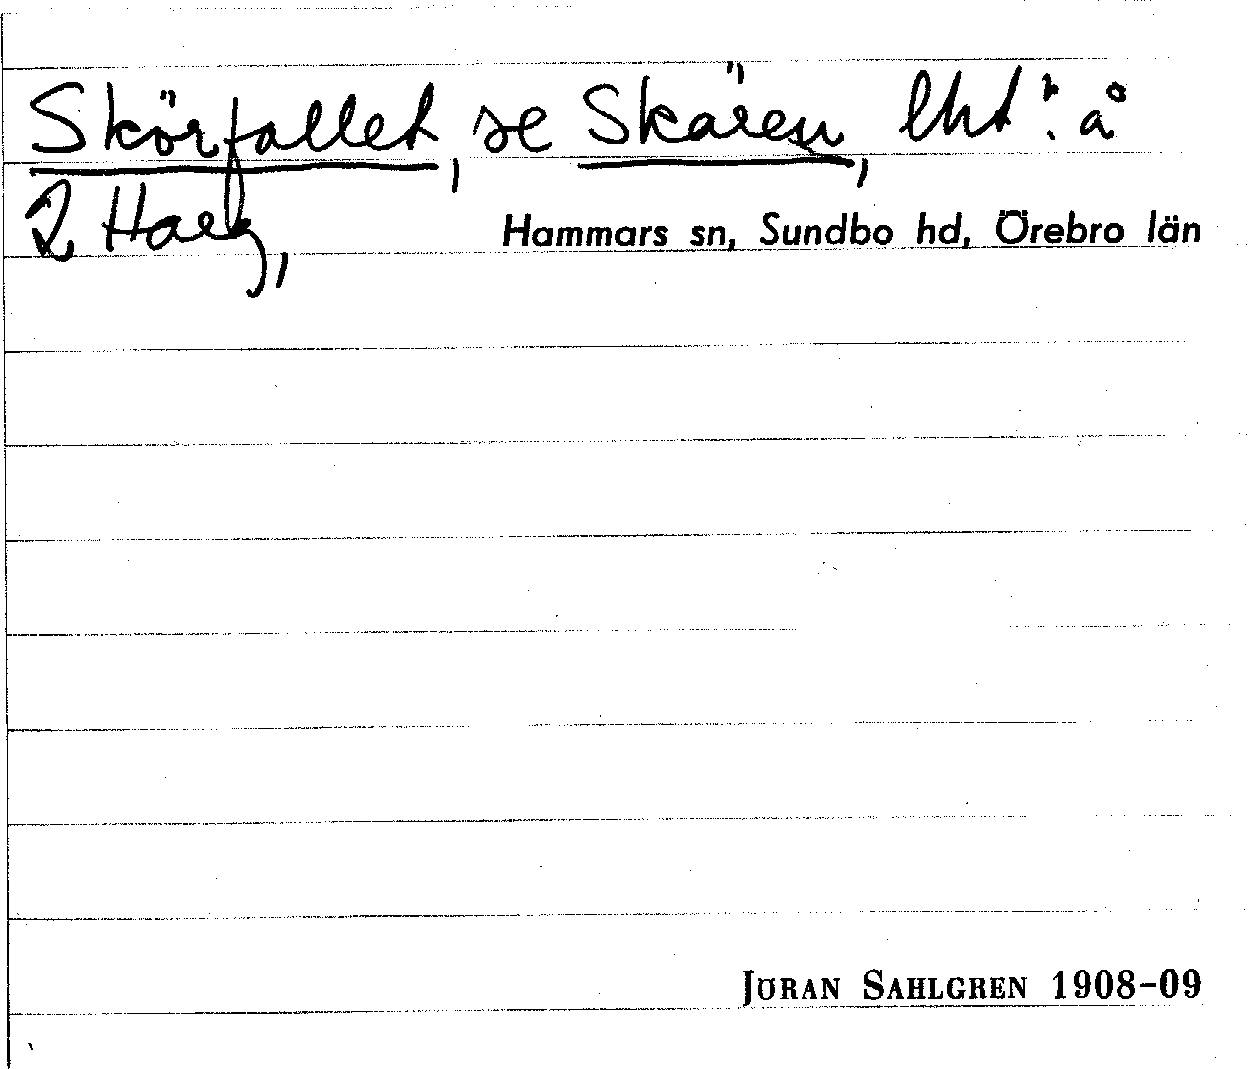 Skörfallet, se Skären, lht: å
2 Harg,
Hammars sn, Sundbo hd, Örebro län
JÖRAN SAHLGREN 1908-09